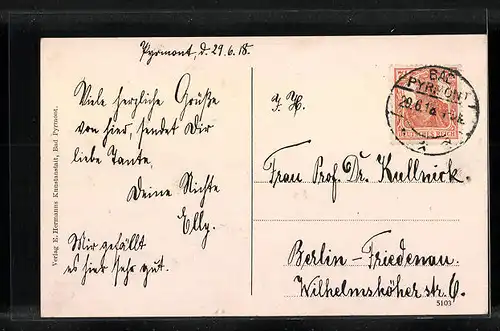 Pyrmont, d. 29.6.18.
Viele herzliche Grüße
von hier, sendet Dir
liebe Tante,
Deine Nichte
Elly.
Mir gefällt
es hier sehr gut.
Verlag E. Hermanns Kunstanstalt, Bad Pyrmont.
BAD
PYRMONT
29.6.18
DEUTSCHES REICH
Frau Prof. Dr. Kullnick.
Berlin-Friedenau.
Wilhelmshöherstr. 6.
5103